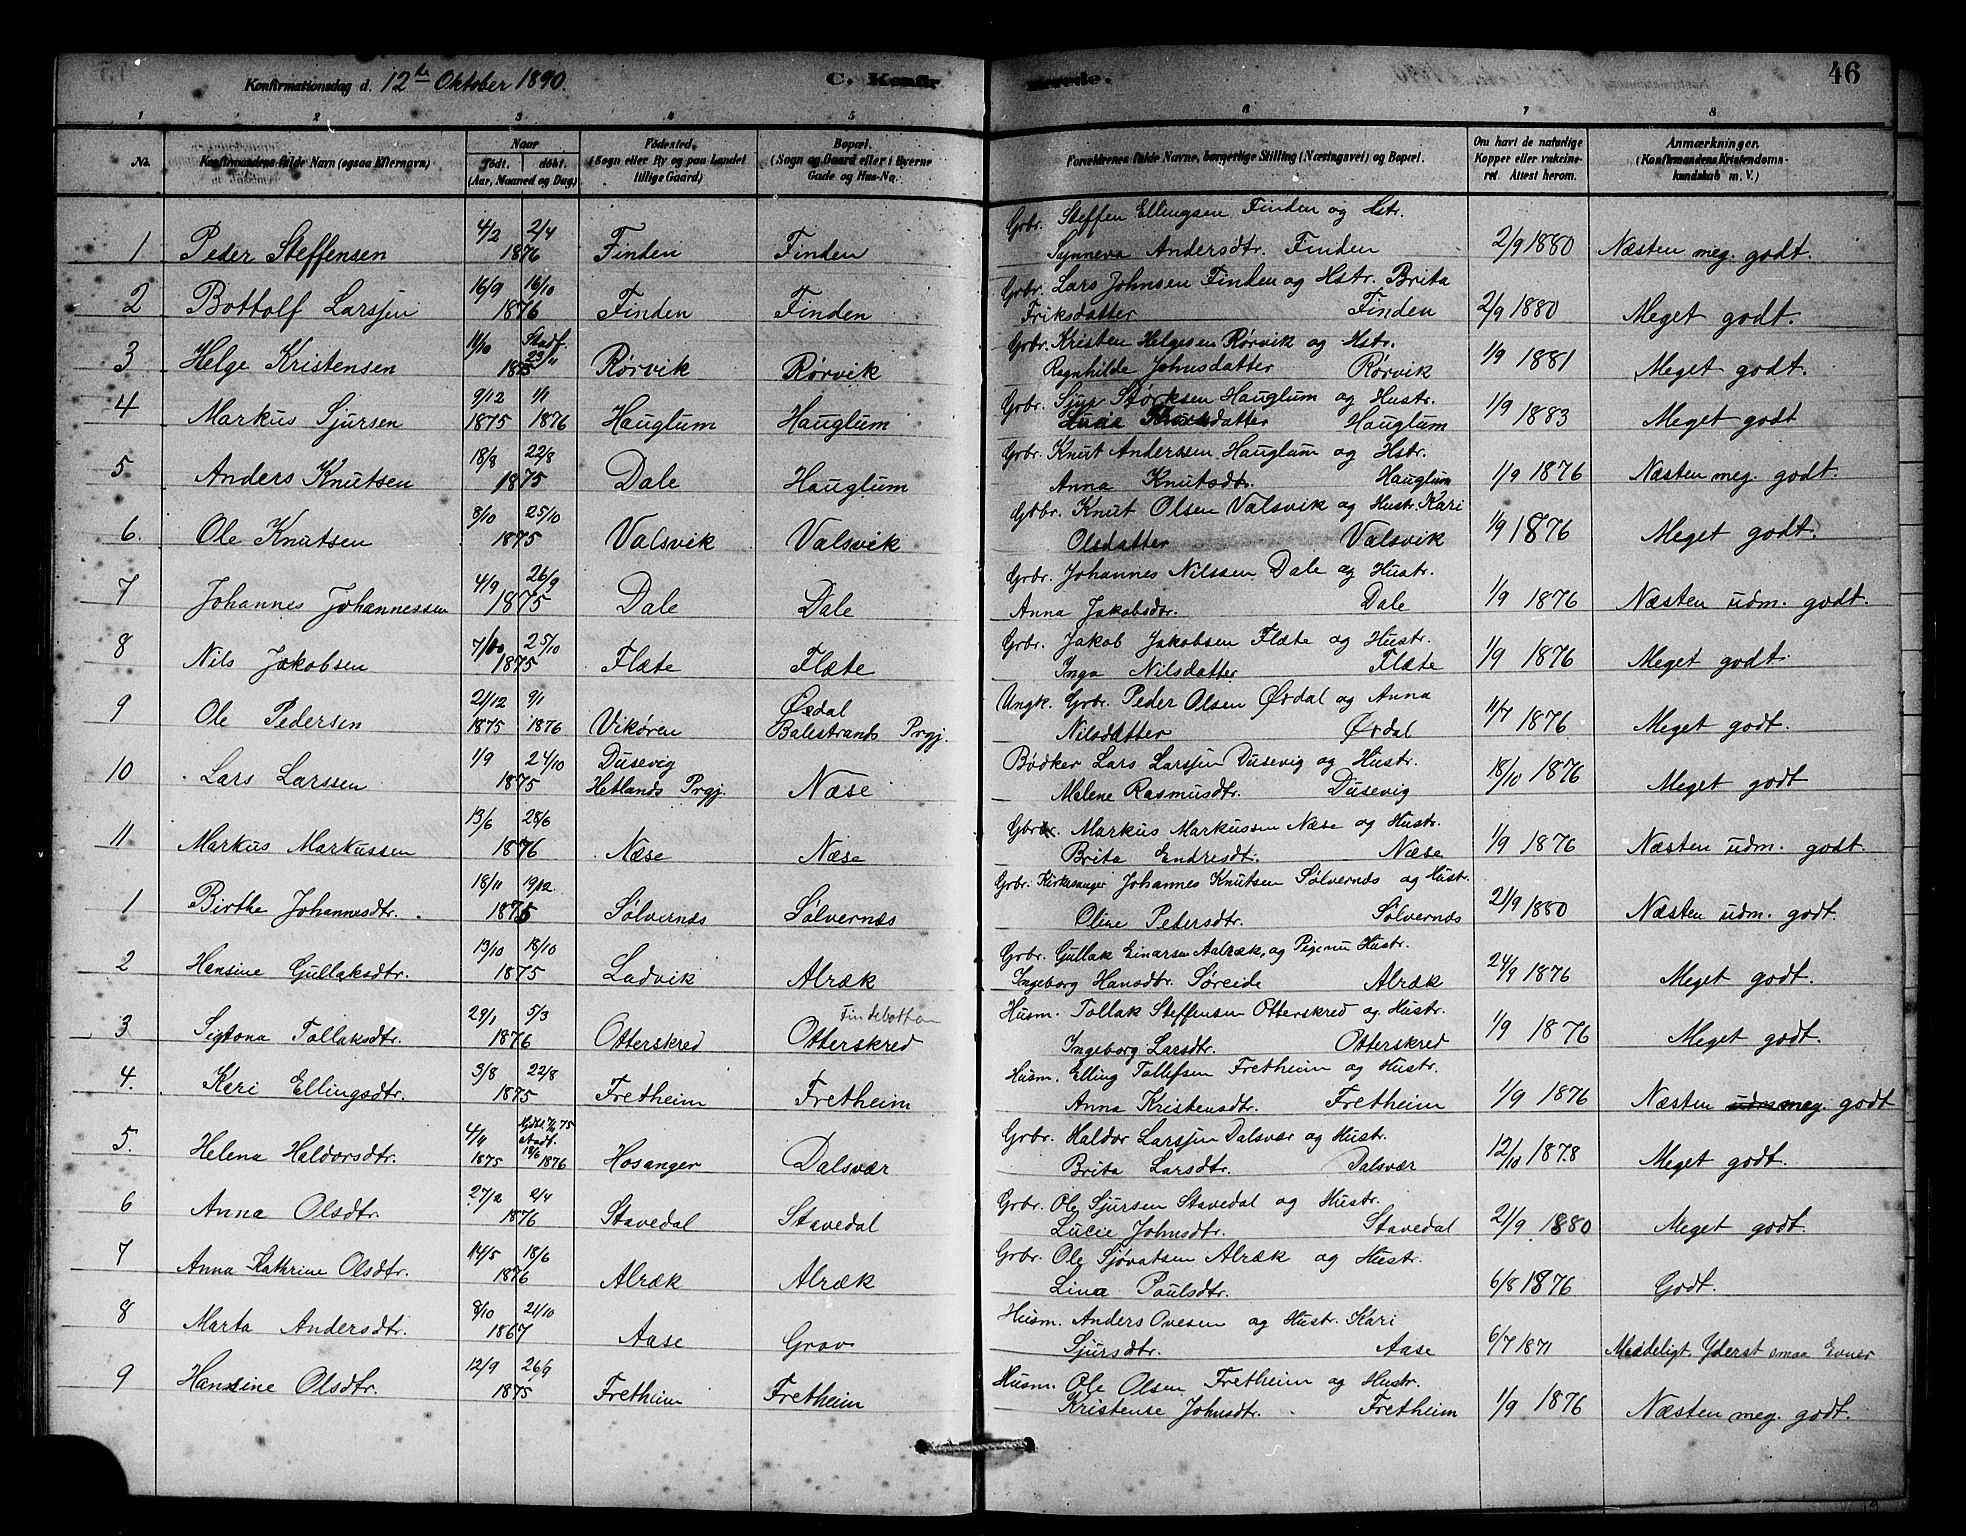 Konfirmationsdag d. 12te Oktober 1890. C. Konfir merede. 46
1 2 3 4 5 6 7 8
No. Konfirmandens fulde Navn (ogsaa Efternavn). Naar Født. døbt. (Aar, Maaned og Dag) Fødested. (Sogn eller By og paa Landet tillige Gaard) Bopæl. (Sogn og Gaard eller i Byerne Gade og Hus-No. Forældrenes fulde Navne, borgerlige Stilling (Næringsvei) og Bopæl. Om havt de naturlige Kopper eller vakcineret. Attest herom. Anmærkninger. (Konfirmandens Kristendomskundskab m. V.)
1 Peder Steffensen 4/2 2/4 1876 Finden Finden Grbr. Steffen Ellingsen Finden og Hstr. Synneva Andersdtr. Finden 2/9 1880 Næsten meg. godt.
2 Bottolf Larssen 16/9 16/10 1876 Finden Finden Grbr. Lars Johnsen Finden og Hstr. Brita Friksdatter Finden 2/9 1880 Meget godt.
3 Helge Kristensen 11/10 Stadf. 23/11 1875 Rørvik Rørvik Grbr. Kristen Helgesen Rørvik og Hstr. Ragnhilde Johnsdatter Rørvik 1/9 1881 Meget godt.
4 Markus Sjursen 9/12 1875 1/1 1876 Hauglum Hauglum Grbr. Sjur Størksen Hauglum og Hustr. Hauglum 1/9 1883 Meget godt
5 Anders Knutsen 18/8 22/8 1875 Dale Hauglum Grbr. Knut Anderssen Hauglum og Hstr. Anna Knutsdt. Hauglum 1/9 1876 Næsten meg. godt.
6. Ole Knutsen 8/10 25/10 1875 Valsvik Valsvik Gbr. Knut Olsen Valsvik og Hustr. Kari Olsdatter Valsvik 1/9 1876 Meget godt.
7 Johannes Johannessen 4/9 26/9 1875 Dale Dale Grbr. Johannes Nilssen Dale og Hustr. Anna Jakobsdtr. Dale 1/9 1876 Næsten udm. godt.
8 Nils Jakobsen 7/10 25/10 1875 Flæte Flæte Grbr. Jakob Jakobsen Flæte og Hustr. Inga Nilsdatter Flæte 1/9 1876 Meget godt.
9 Ole Pedersen 21/12 1875 9/1 1876 Vikøren Ørdal Balestrands Prgj. Ungk. Grbr. Peder Olsen Ørdal og Anna Nilsdatter Ørdal 11/7 1876 Meget godt.
10 Lars Larssen 1/9 24/10 1875 Dusevig Hetlands Prgj. Næse Bødker Lars Larssen Dusevig og Hustr. Malene Rasmusdtr. Dusevig 18/10 1876 Meget godt
11 Markus Markussen 13/6 28/6 1876 Næse Næse Gbr. Markus Markussen Næse og Hustr. Brita Endresdt. Næse 1/9 1876 Næsten udm. godt.
1 Birthe Johannesdtr. 18/11 19/12 1875 Sølvernæs Sølvernæs Grbr. Kirkesanger Johannes Knutsen Sølvernæs og Hustr. Oline Pedersdtr. Sølvernæs 21/9 1880 Næsten udm. godt.
2 Hansine Gullaksdtr. 13/10 18/10 1875 Ladvik Alræk Grbr. Gullak Einarsen Aalræk, og Pige nu Hustr. Ingeborg Hansdtr. Søreide Alræk 24/9 1876 Meget godt.
3. Sigtona Tollaksdtr. 29/1 5/3 1876 Otterskred Findebotten Otterskred Husm. Tollak Steffensen Otterskred og Hustr. Ingeborg Larsdtr. Otterskred 1/9 1876 Meget godt.
4. Kari Ellingsdtr. 3/8 22/8 1875 Fretheim Fretheim Husm. Elling Tollefsen Fretheim og Hustr. Anna Kristensdtr. Fretheim 1/9 1876 Næsten udm meg. godt
5. Helena Haldorsdtr. 4/11 1875 Stadf. 18/6 1876 Hosanger Dalsvær Grbr. Haldor Larssen Dalsvær og Hustr. Brita Larsdtr. Dalsvær 12/10 1878 Meget godt.
6 Anna Olsdtr. 27/2 2/4 1876 Stavedal Stavedal Grbr. Ole Sjursen Stavedal og Hustr. Lucie Johnsdtr. Stavedal 21/9 1880 Meget godt.
7 Anna Kathrine Olsdtr. 14/5 18/6 1876 Alræk Alræk Grbr. Ole Sjøvatsen Alræk og Hustr. Lina Paulsdtr. 6/8 1876 Godt.
8 Marta Andersdtr. 8/10 21/10 1867 Aase Grov Husm. Anders Ovesen og Hustr. Kari Sjursdtr. Aase 6/7 1871 Maadeligt. Yderst smaa Evner
9 Hansine Olsdtr. 12/9 26/9 1875 Fretheim Fretheim Husm. Ole Olsen Fretheim og Hustr. Kristense Johnsdtr. Fretheim 1/9 1876 Næsten meg. godt.